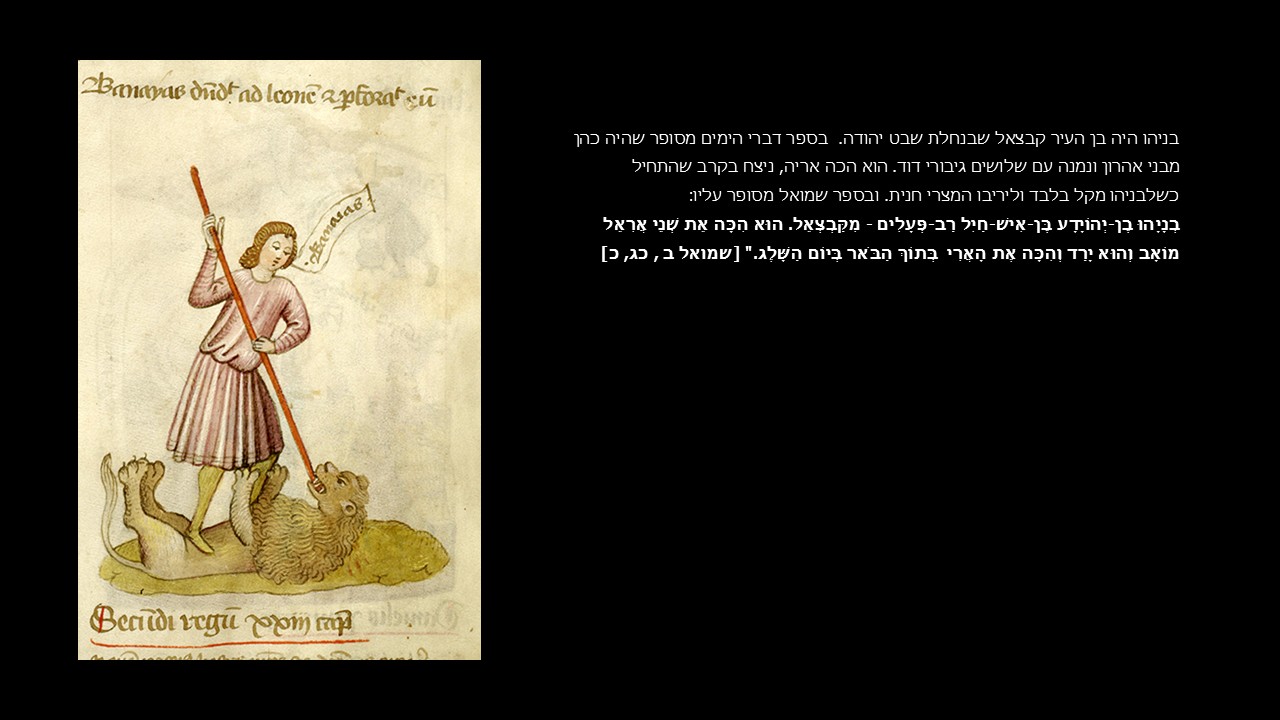 Banayas dūdt ad leonē & ꝑforat eū
Banaias
Secūdi regū xxiii cap
בניהו היה בן העיר קבצאל שבנחלת שבט יהודה. בספר דברי הימים מסופר שהיה כהן
מבני אהרון ונמנה עם שלושים גיבורי דוד. הוא הכה אריה, ניצח בקרב שהתחיל
כשלבניהו מקל בלבד וליריבו המצרי חנית. ובספר שמואל מסופר עליו:
בְּנָיָהוּ בֶן-יְהוֹיָדָע בֶּן-אִישׁ-חַיִל רַב-פְּעָלִים - מִקַּבְצְאֵל. הוּא הִכָּה אֵת שְׁנֵי אֲרִאֵל
מוֹאָב וְהוּא יָרַד וְהִכָּה אֶת הָאֲרִי בְּתוֹךְ הַבֹּאר בְּיוֹם הַשָּׁלֶג." [שמואל ב , כג, כ]